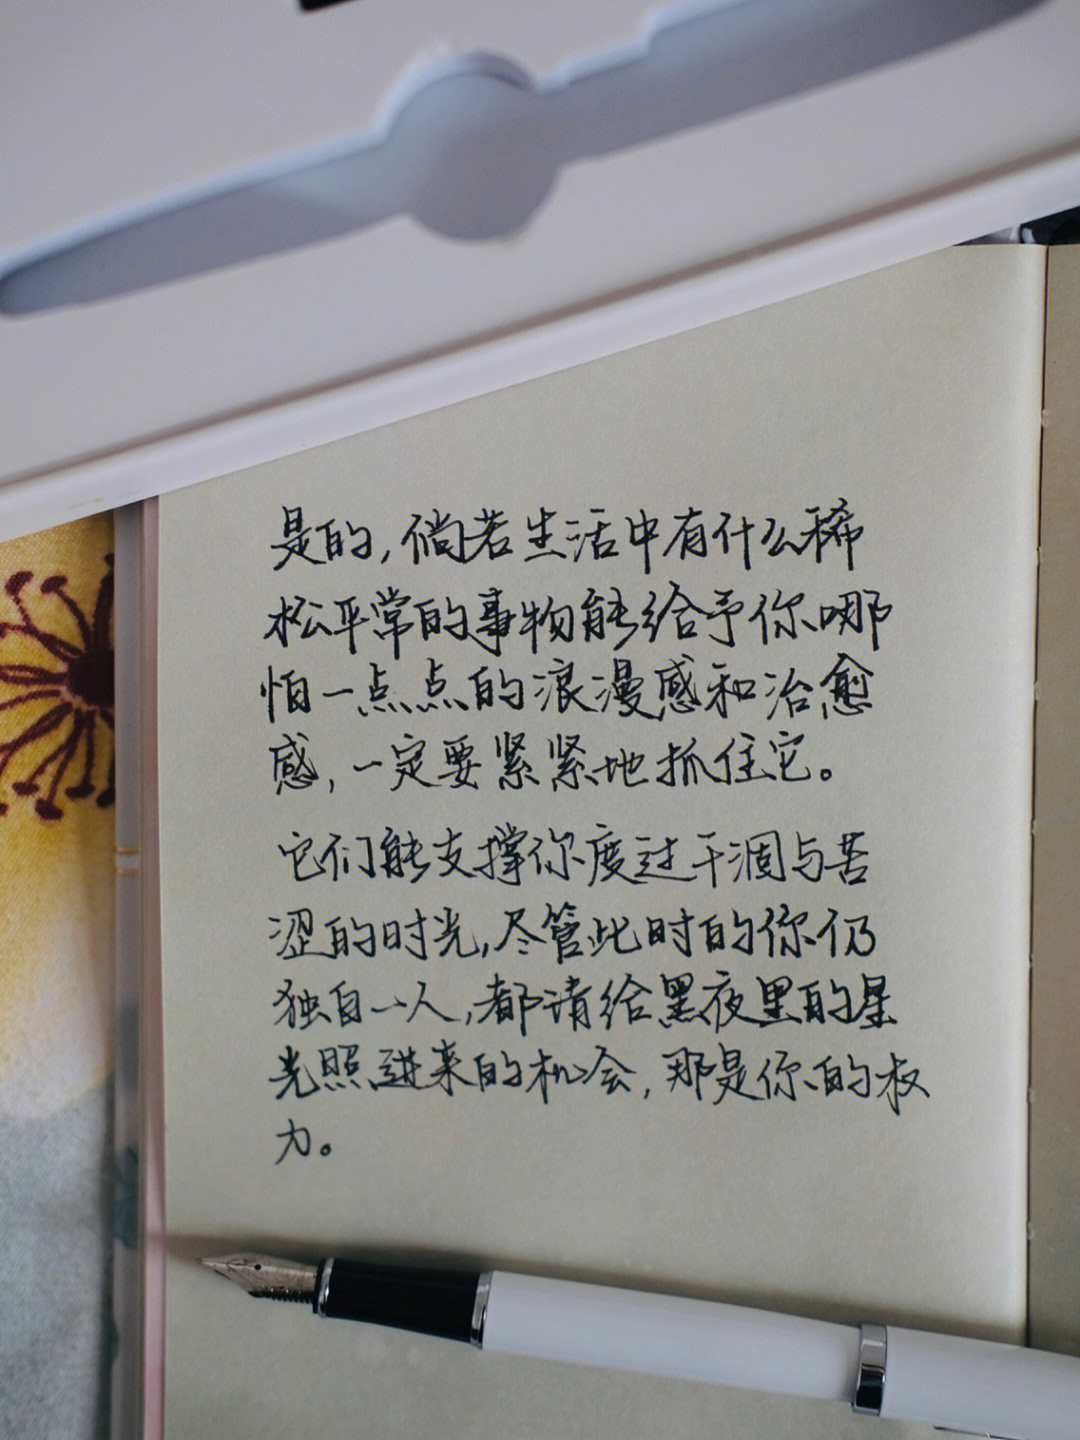 是的，倘若生活中有什么稀
松平常的事物能给予你哪
怕一点点的浪漫感和治愈
感，一定要紧紧地抓住它。
它们能支撑你度过干涸与苦
涩的时光，尽管此时的你仍
独自一人，都请给黑夜里的星
光照进来的机会，那是你的权
力。